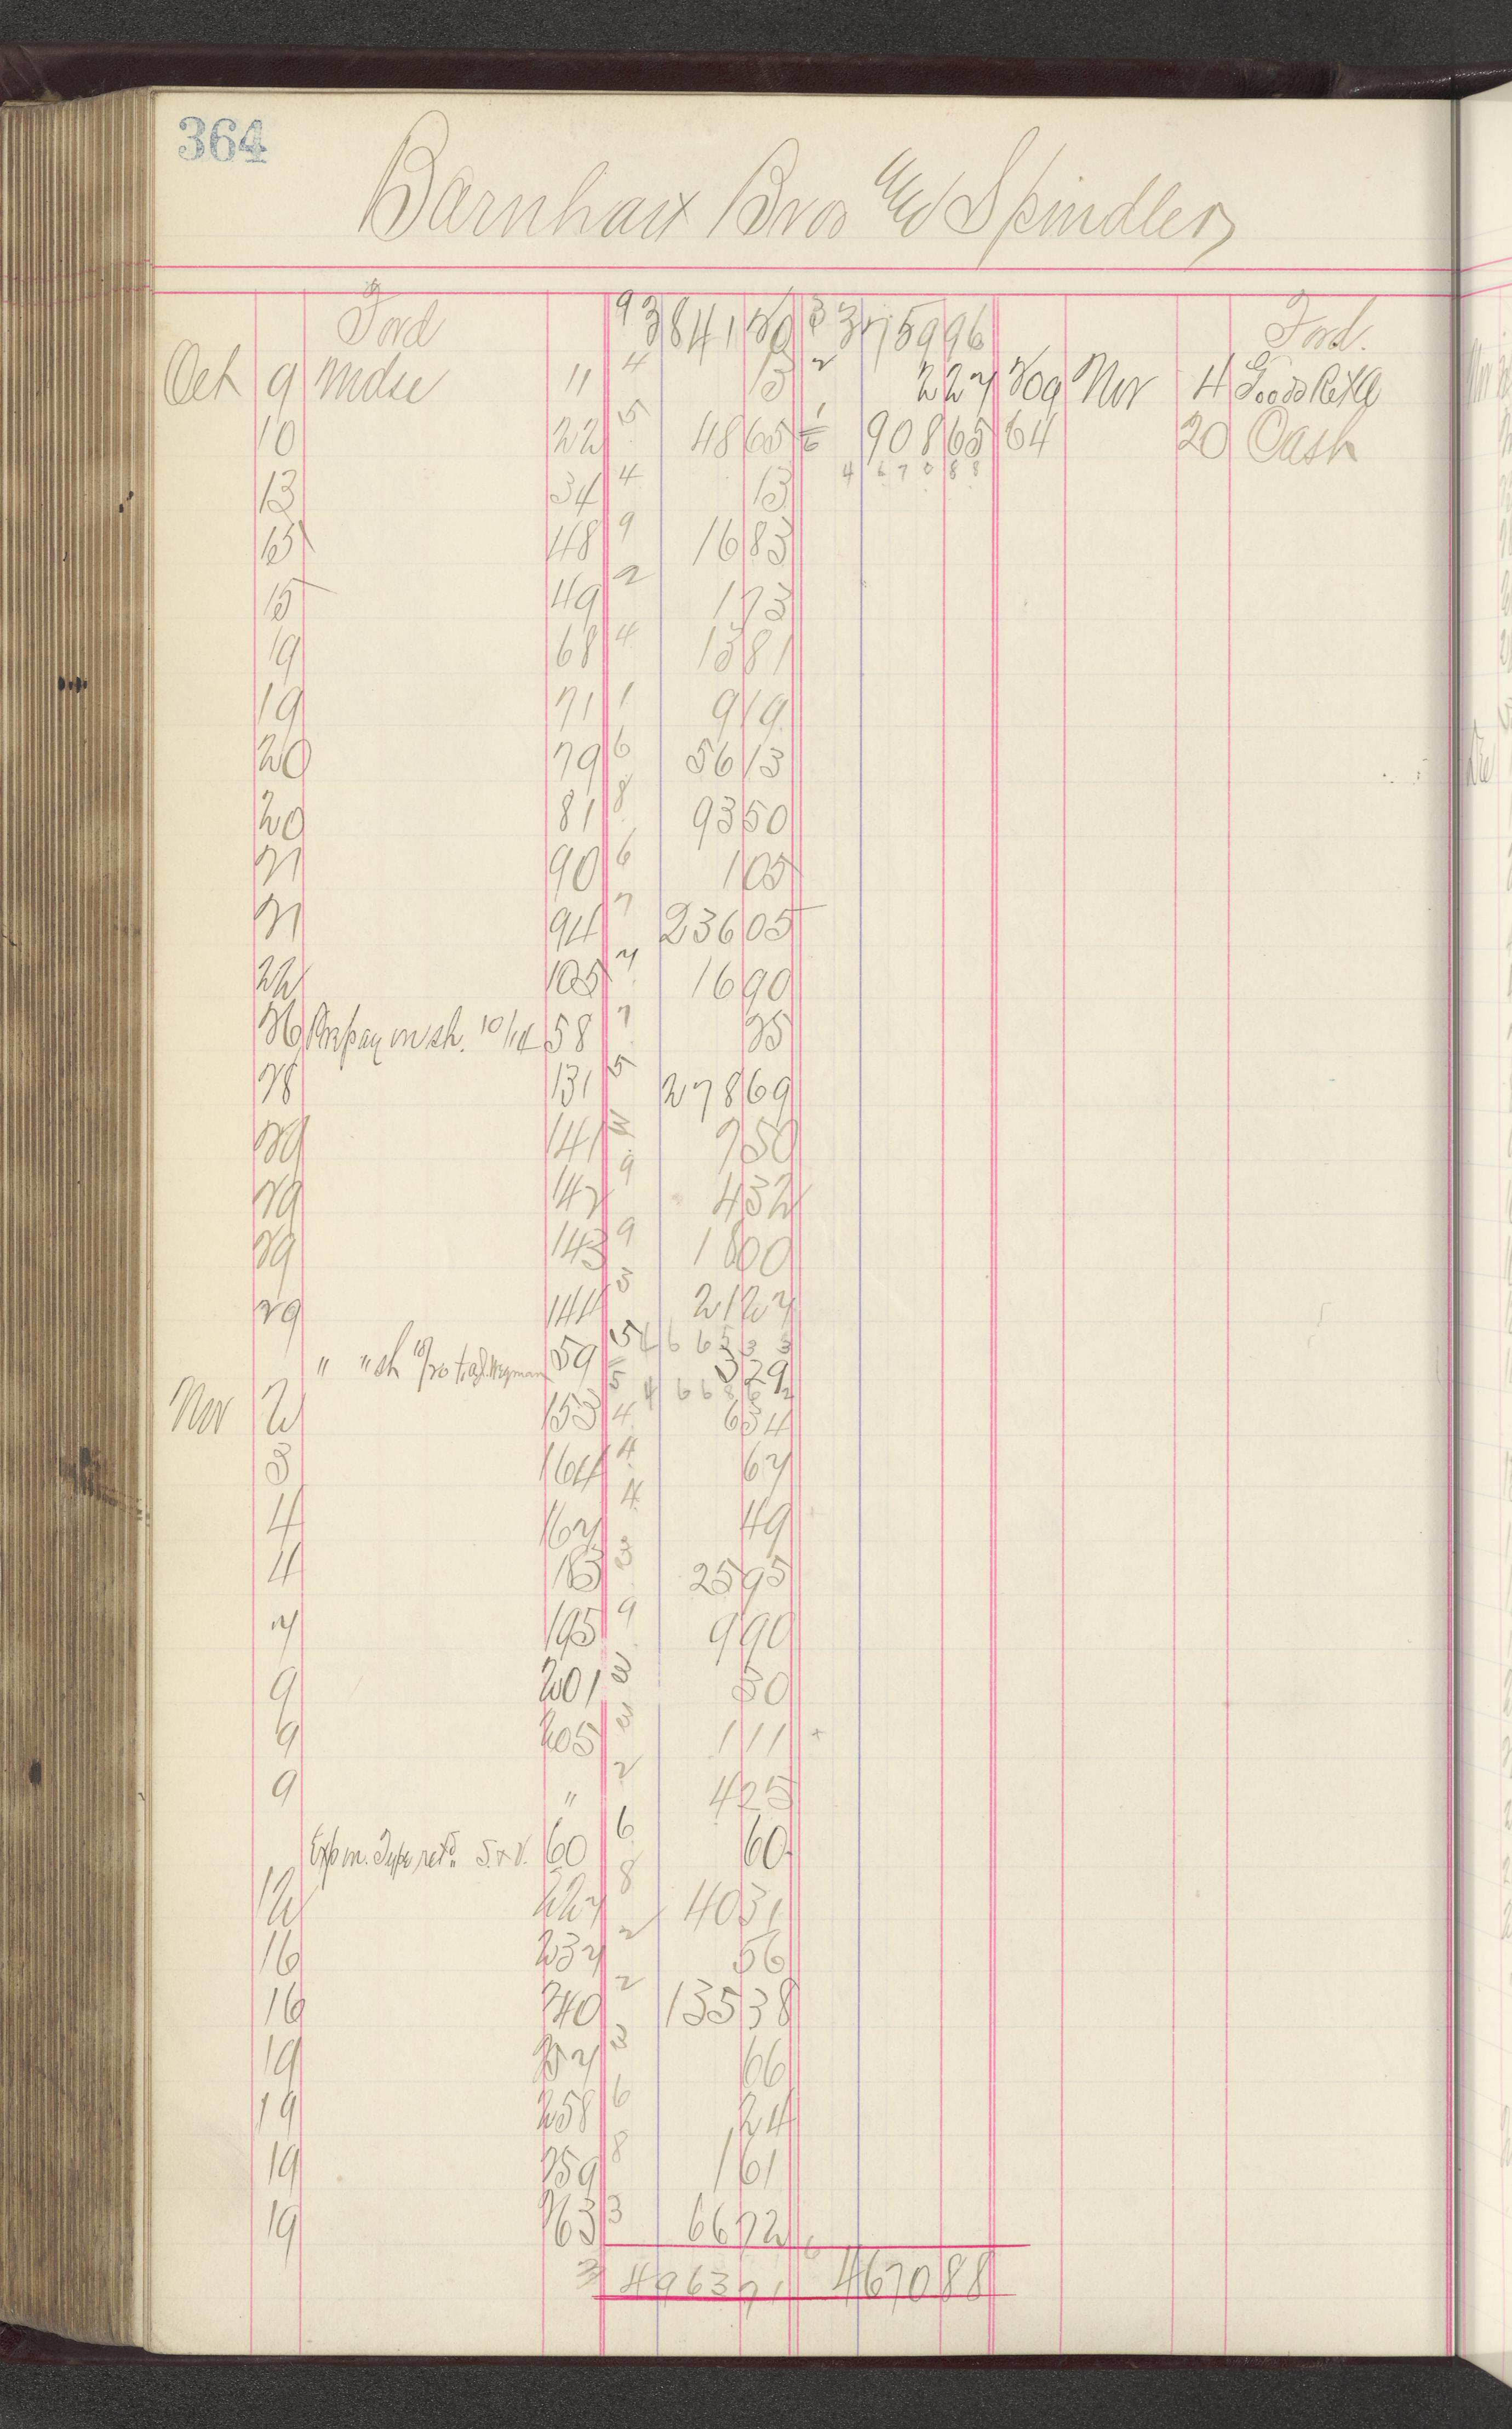 364
Barnhart Bros and Spindler
Ford 9 3841 20 3 3759 96 Ford.
Oct 9 Mdse 11 4 13 2 2 27 209 Nov 4 Goods Retd
10 22 5 48 65 1/6 908 65 64 20 Cash
13 34 4 13 4 6 7 0 8 8
15 48 9 16 83
15 49 2 1 73
19 68 4 13 81
19 71 1 9 19
20 79 6 56 13
20 81 8 93 50
21 90 6 1 05
21 94 7 236 05
22 105 7 16 90
26 Prepay on sh. 10/14 58 7 25
28 131 5 278 69
29 141 3 7 50
29 142 9 4 32
29 143 9 18 00
29 144 3 21 27
5 4 6 6 5 3 3
" " sh 10/20 59 5 3 29
4 6 6 8 6 2
Nov 2 153 4 6 34
3 164 4 67
4 167 4 49
4 183 3 25 95
7 195 9 9 90
9 201 3 30
9 205 3 1 11 +
9 " 2 4 25
Exp on. Type retd. S. & V. 60 6 60
12 227 8 40 31
16 237 2 56
16 240 2 135 38
19 257 3 66
19 258 6 24
19 259 8 1 61
19 263 3 66 72 6
3 4963 71 4670 88